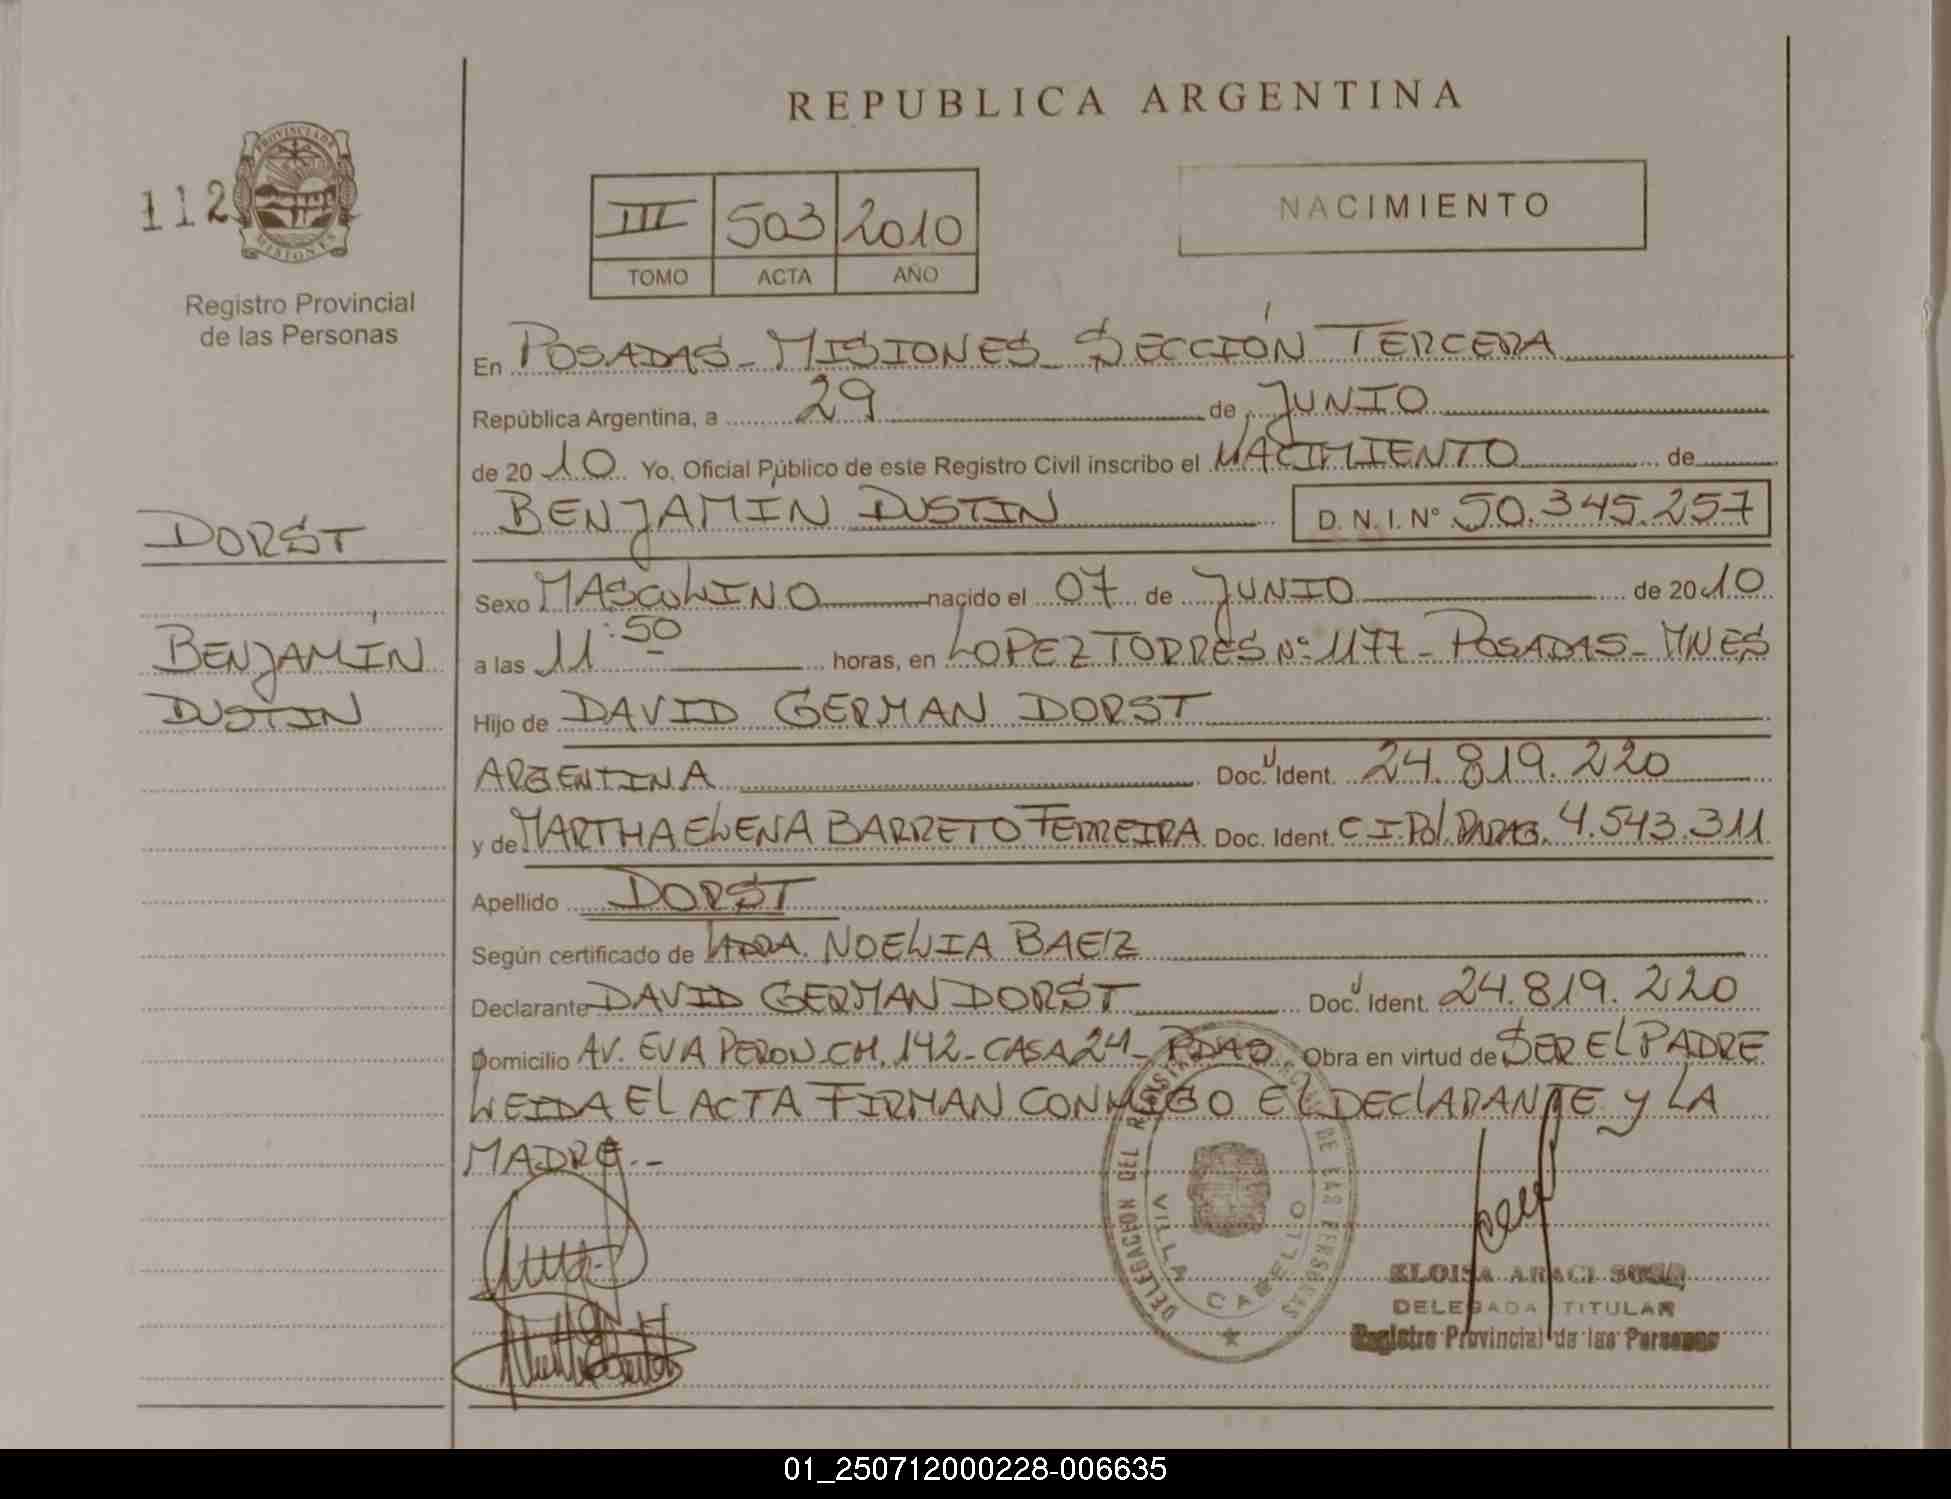 REPUBLICA ARGENTINA
112
PROVINCIA DE
MISIONES
Registro Provincial
de las Personas
III 503 2010
TOMO ACTA AÑO
NACIMIENTO
En POSADAS - MISIONES - SECCIÓN TERCERA
República Argentina, a 29 de JUNIO
de 2010 Yo, Oficial Público de este Registro Civil inscribo el NACIMIENTO de
BENJAMIN DUSTIN D.N.I. Nº 50.345.257
DORST
BENJAMÍN
DUSTIN
Sexo MASCULINO nacido el 07 de JUNIO de 2010
a las 11:50 horas, en LOPEZ TORRES Nº 1177 - POSADAS - MNES
Hijo de DAVID GERMAN DORST
ARGENTINA Doc. Ident. 24.819.220
y de MARTHA ELENA BARRETO FERREIRA Doc. Ident. C.I. Pol. PARAG. 4.543.311
Apellido DORST
Según certificado de NOELIA BAEZ
Declarante DAVID GERMAN DORST Doc. Ident. 24.819.220
Domicilio AV. EVA PERON - CH. 142 - CASA 24 - Obra en virtud de SER EL PADRE
LEIDA El ACTA FIRMAN CONMIGO El DEClARANTE y LA
MADRE.-
DELEGACION DEL REGISTRO DE LAS PERSONAS
VILLA CABELLO
ELOISA ARACI SOSA
DELEGADA TITULAR
Registro Provincial de las Personas
01_250712000228-006635